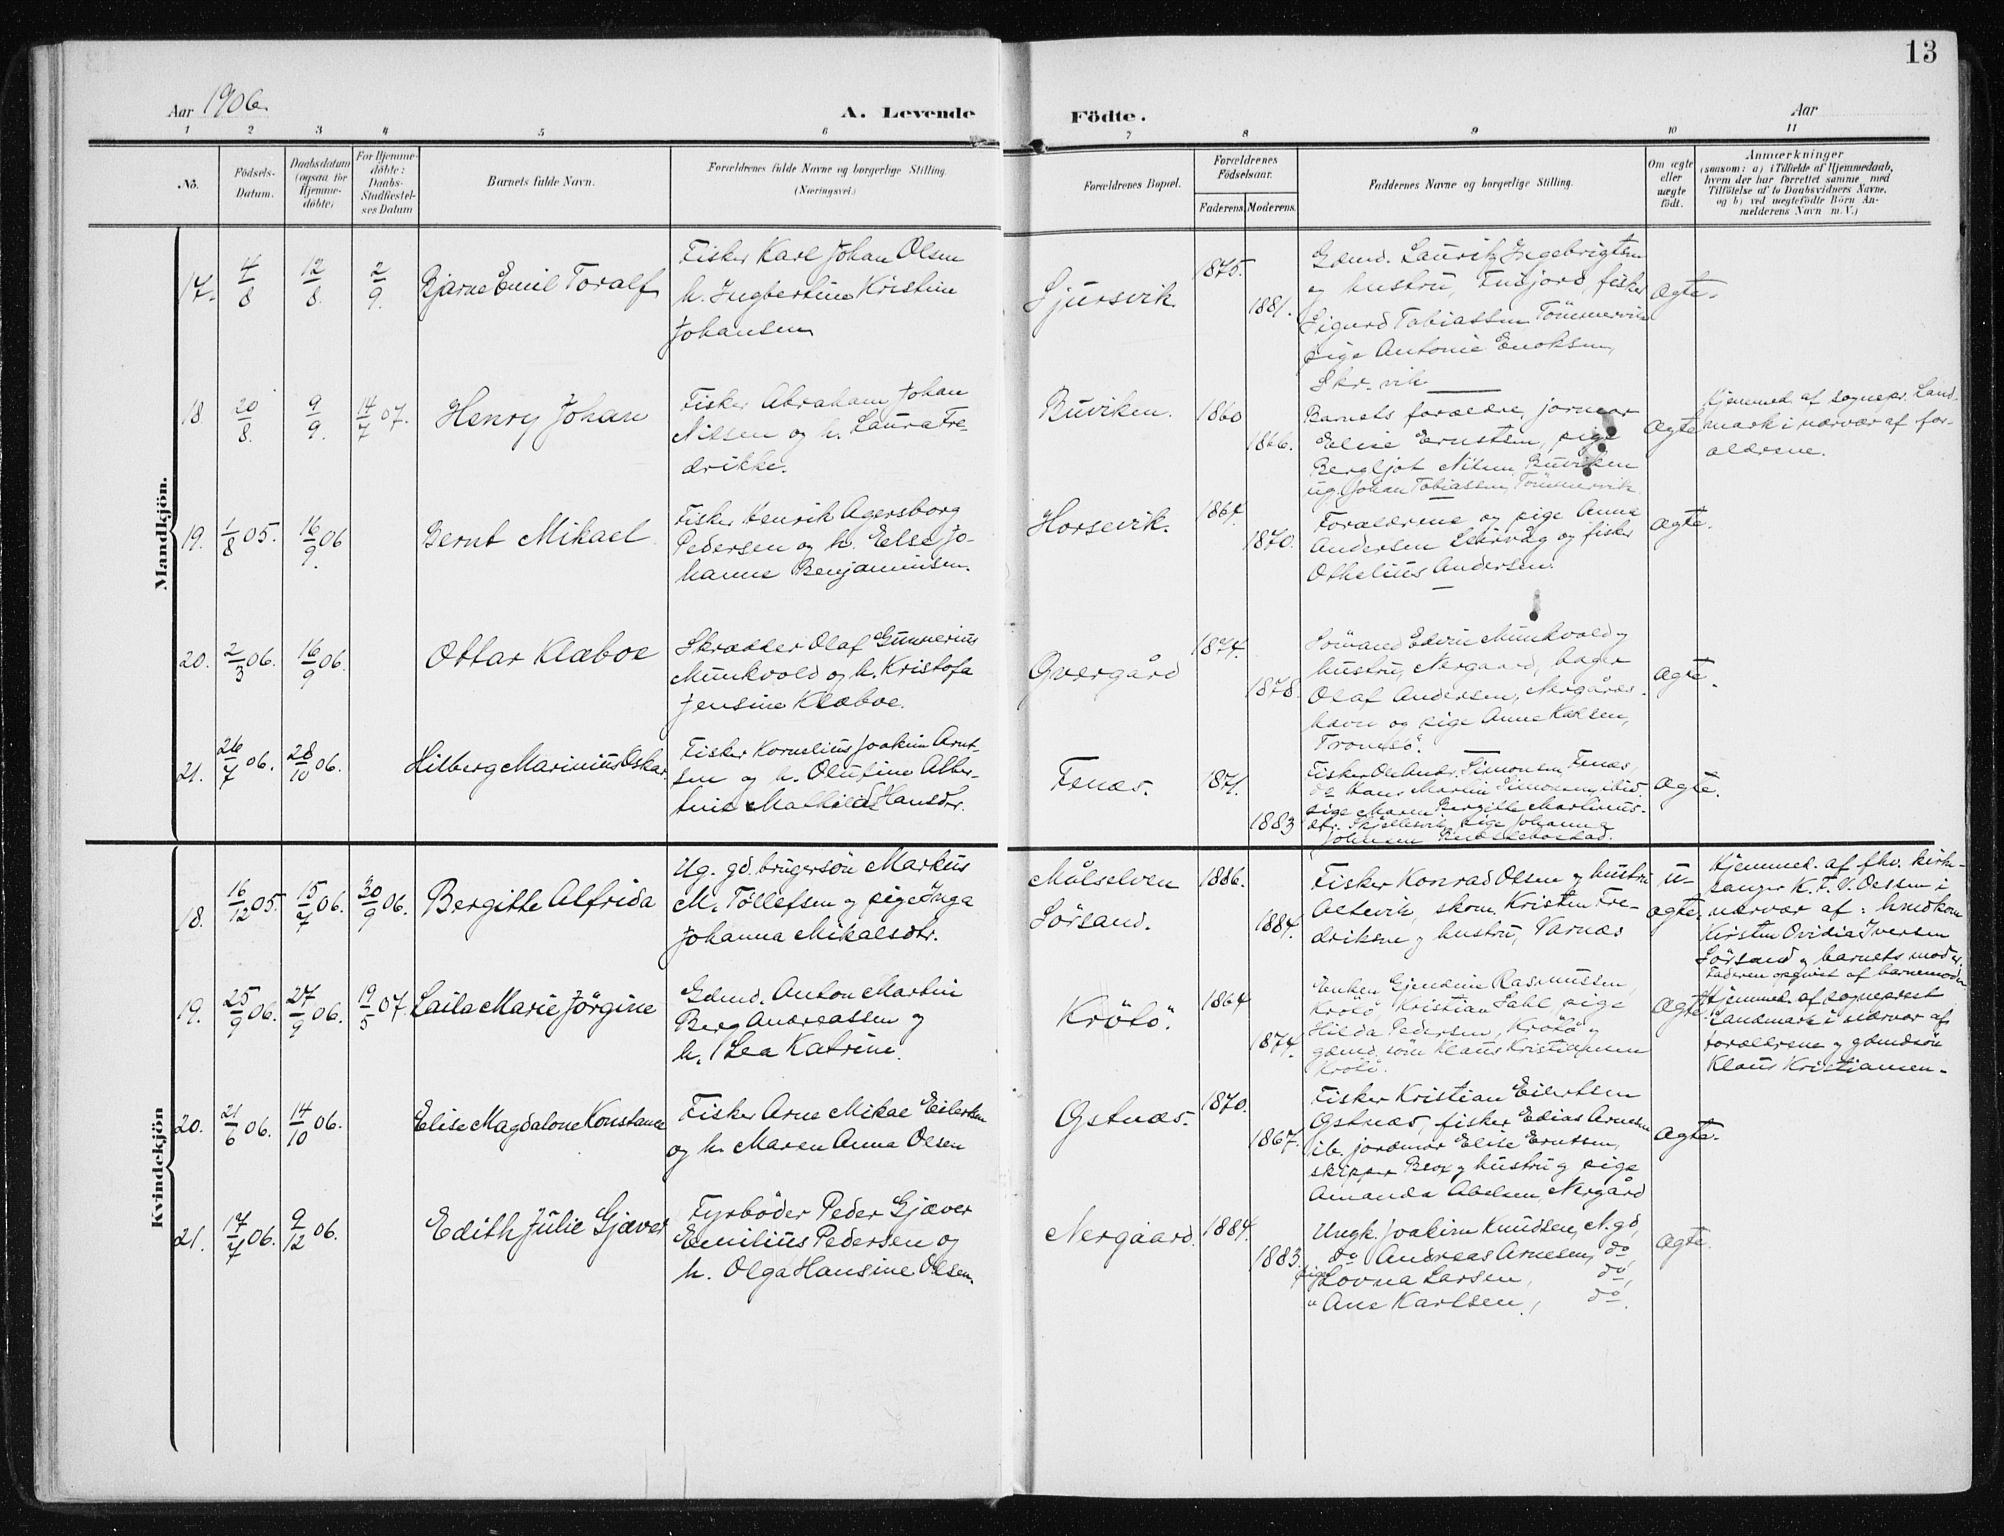 13
Aar 1906.
A. Levende Födte.
Aar
1 2 3 4 5 6 7 8 9 10 11
No.
Födsels-Datum.
Daabsdatum (ogsaa for Hjemme-döbte)
For Hjemme-döbte: Daabs-Stadfæstel-ses Datum
Barnets fulde Navn.
Forældrenes fulde Navne og borgerlige Stilling. (Næringsvei.)
Forældrenes Bopæl.
Forældrenes Födselsaar.
Faderens. Moderens.
Faddernes Navne og borgerlige Stilling.
Om ægte eller uægte födt.
Anmærkninger
(saasom: a) i Tilfælde af Hjemmedaab, hvem der har forrettet samme med Tilföielse af to Daabsvidners Navne, og b) ved uægtefödte Börn An-melderens Navn m. V.)
Mandkjön.
17. 4/8 12/8 2/9 Bjarne Emil Toralf
Fisker Karl Johan Olsen
h. Ingbertine Kristine
Johansen
Sjursvik 1875. 1881.
Gdmd. Lauritz Ingebrigtsen
og hustru, Finfjord, fisker
Sigurd Tobiassen Tömmervik
pige Antonie Enoksen,
Skr. vik
ægte.
18 20/8. 9/9 14/7 07. Henry Johan
Fisker Abraham Johan
Nilsen og h. Laura Fre-
drikke.
Buviken. 1860 1866.
Barnets forældre, jormor
Elise Ernstsen, pige
Bergljot Nilsen Buviken
ug. Johan Tobiassen, Tömmervik.
ægte
Hjemmed. af sognepr. Land-
mark i nærvær af for-
ældrene.
19. 1/8 05. 16/9 06 Bernt Mikael
Fisker Henrik Agersborg
Pedersen og h. Else Jo-
hanne Benjaminsen.
Horsevik. 1864. 1870.
Forældrene og pige Anna
Andersen Leirvåg og fisker
Othelius Andersen.
ægte.
20. 2/3 06. 16/9 06. Ottar Klæboe
Skrædder Olaf Gunnerius
Munkvold og h. Kristofa
Jensine Klæboe.
Gvergård 1874. 1878.
Sömand Edvin Munkvold og
hustru, Nergaard, bager
Olaf Andersen, Nergårds-
havn og pige Anna Karlsen,
Tromsö.
ægte.
21. 26/7 06. 28/10 06. Hilberg Marinius Oskar
Fisker Kornelius Joakim Arnt-
sen og h. Olufine Alber-
tine Mathilde Hansdtr.
Fenæs. 1871. 1883
Fisker Ole Andr. Simonsen, Fenæs,
do Hans Martin Simonsen, ibid
pige Maren Bergitte Martinus-
dtr. Skjellesvik, pige Johanna
Johnsen
ægte.
Kvindekjön
18. 16/12 05. 15/7 06. 30/9 06. Bergitte Alfrida
Ug. gd. brugersön Markus
M. Töllefsen og pige Inga
Johanna Mikalsdtr.
Målselven
Sörsand. 1886. 1884.
Fisker Konrad Olsen og hustru
Altevik, skom. Kristen Fre-
driksen og hustru, Varnæs
u-
ægte.
Hjemmed. af fhv. kirke-
sanger K. F. V. Oessen i
nærvær af: hmdkone
Kirsten Ovidia Iversen
Sörsand og barnets moder.
Faderen opgivet af barnemod.
19. 25/9 06. 27/9 06. 19/5 07 Laila Marie Jörgine
Gdmd. Anton Martin
Berg Andreassen og
h. Lea Katrine.
Krölö. 1864 1874.
Enken Gjendine Rasmussen,
Krölö Kristian Dahl, pige
Hilda Pedersen, Krölö og
gdmd. sön Klaus Kristiansen
Krölö.
ægte
Hjemmed. af sogneprest
Landmark i nærvær af
forældrene og gdmdsön
Klaus Kristiansen.
20. 21/6 06. 14/10 06. Elise Magdalone Konstance
Fisker Arne Mikae Eilertsen
og h. Maren Anna Olsen
Gstnæs. 1870. 1867.
Fisker Kristian Eilertsen
Gstnæs, fisker Edias Arnesen
ib. jordmor Elise Ernstsen,
skipper Beox og hustru og pige
Amanda Abelsen, Nergård
ægte.
21. 17/7 06. 9/12 06. Edith Julie Gjæver
Fyrböder Peder Gjæver
Emilius Pedersen og
h. Olga Hansine Olsen.
Nergaard. 1884. 1883.
Ungk. Joakim Knudsen, N.gd,
do Andreas Arnesen, do,
pige Lovna Larsen, do,
" Ane Karlsen, do.
ægte.